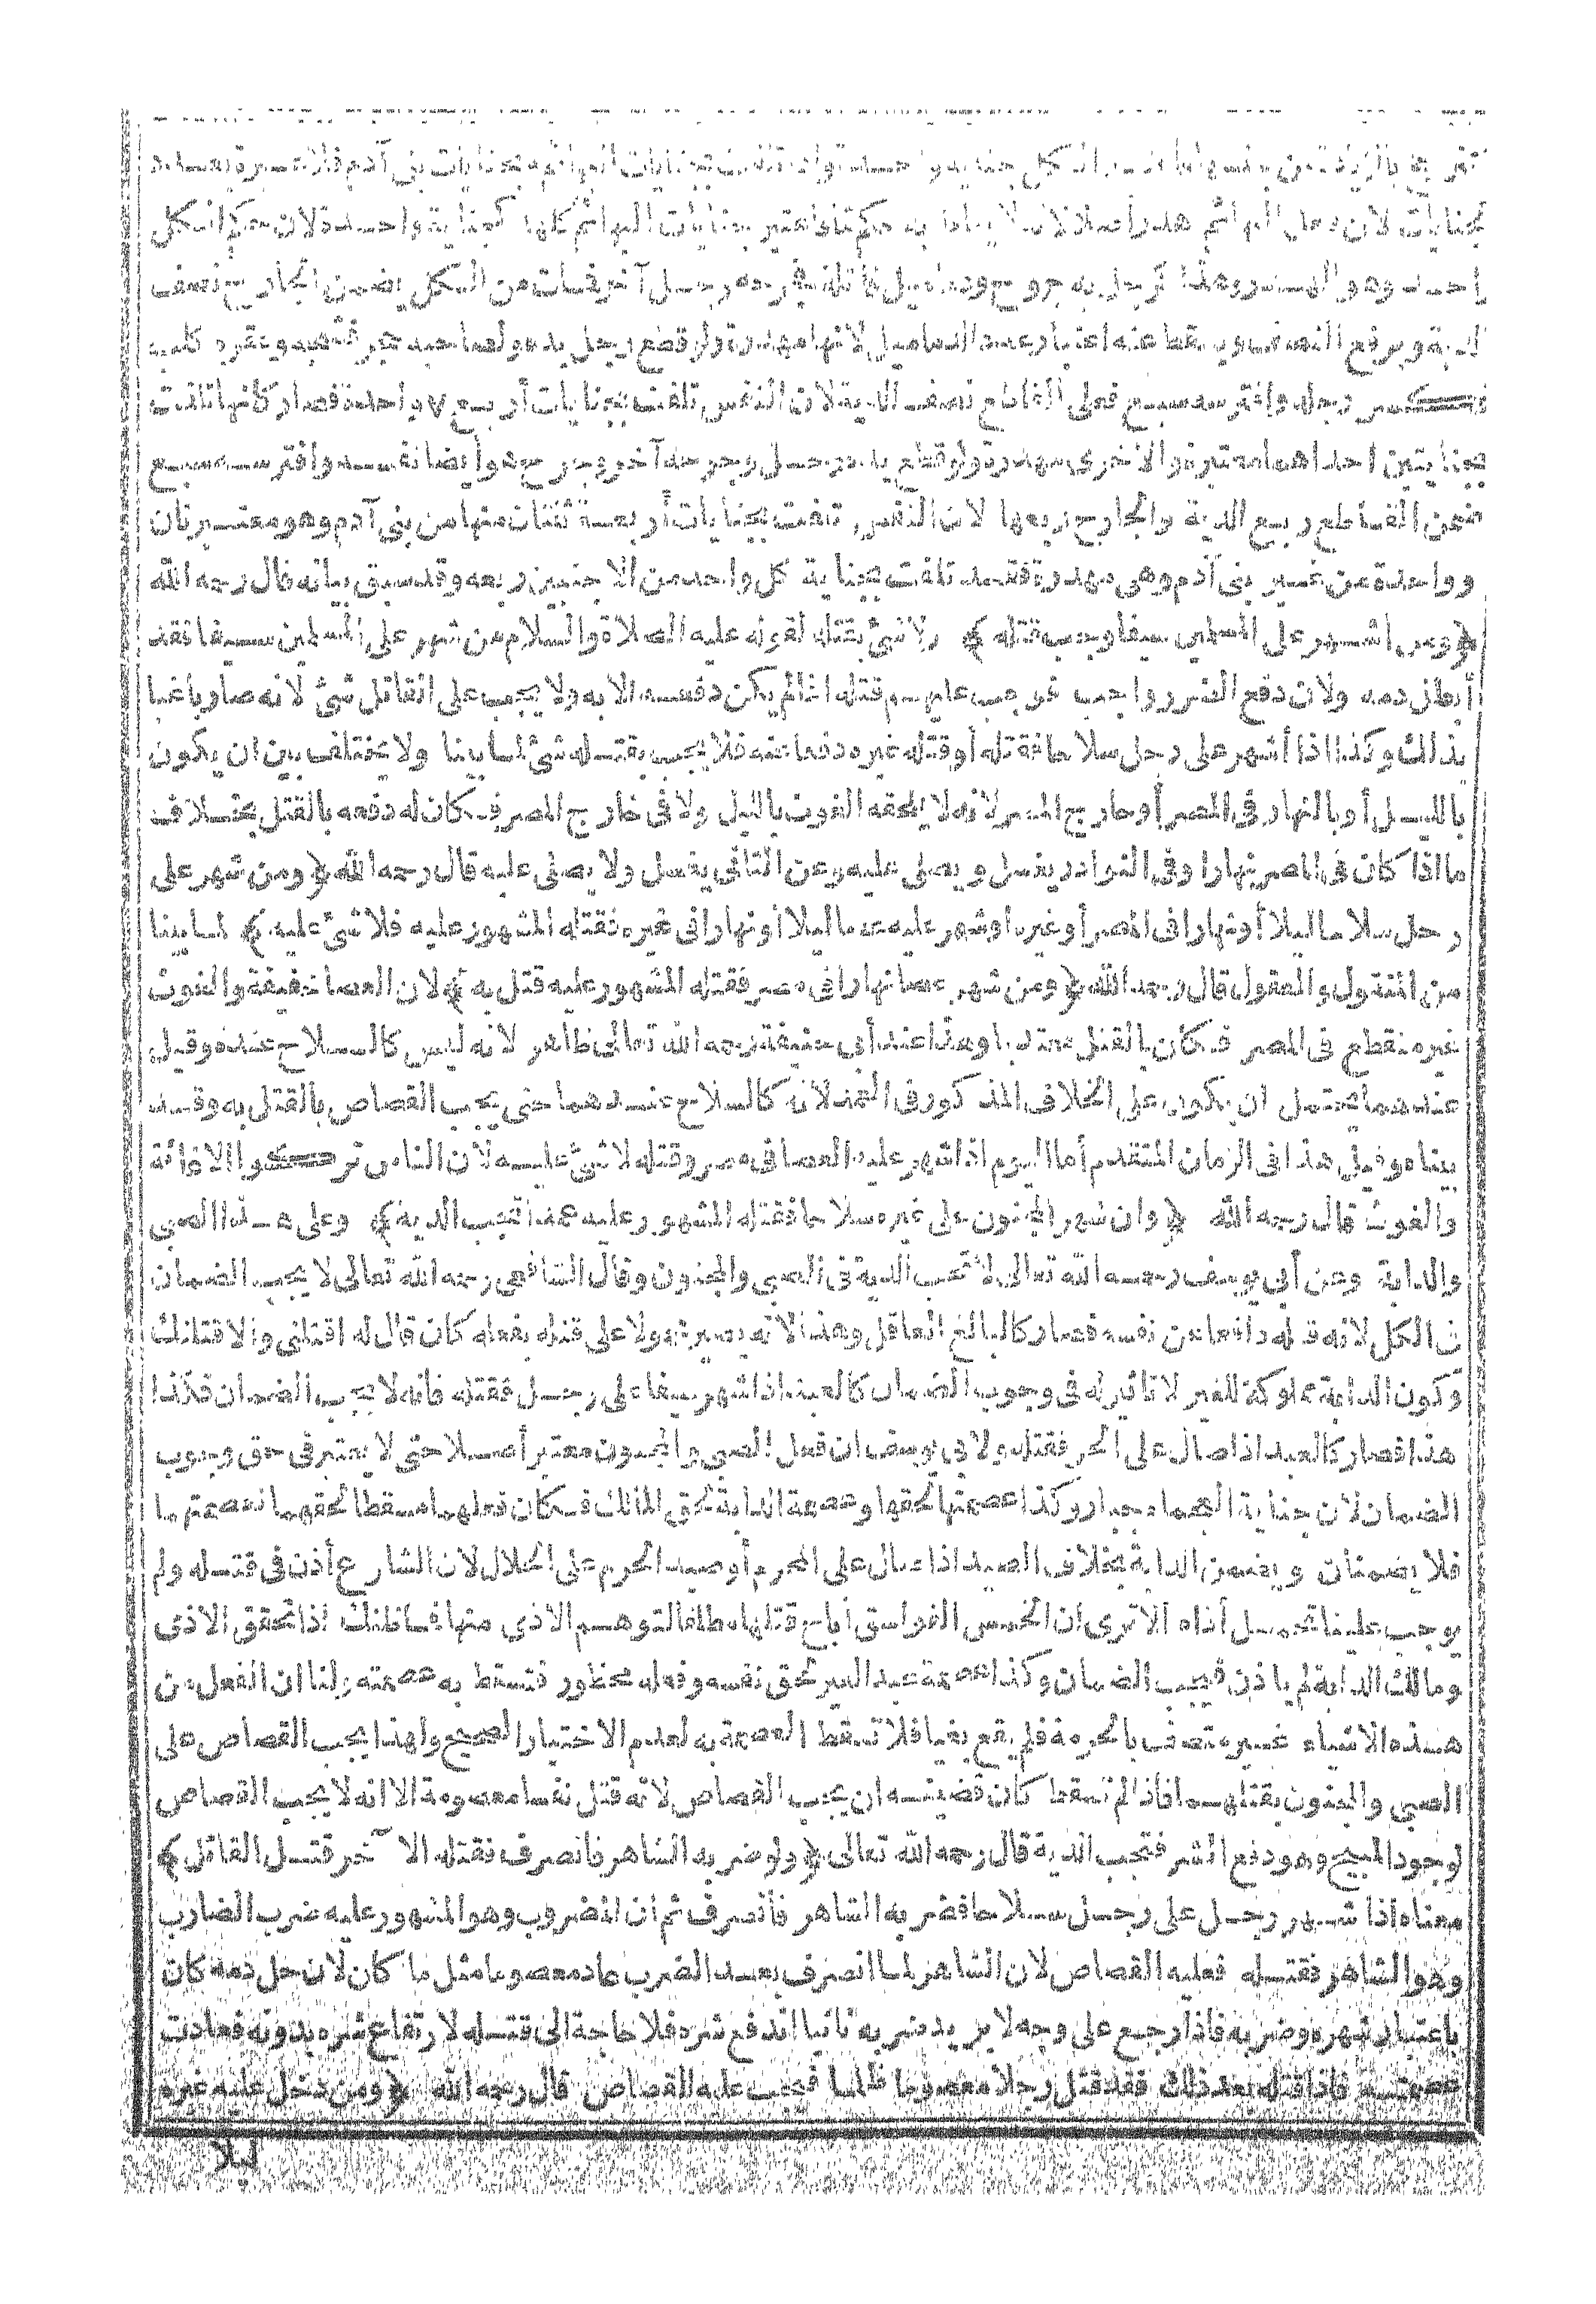 بجنايات لان فعل البهائم هدر أصلا لانه لا يفاد به حكم تافاعتبر جنايات البهائم كلها كجناية واحدة لان حكم الكل
وهو الهدر رجل به جروح ودماميل فجرحه رجل آخر فمات من الكل يضمن الجارح نصف
الدية ويرفع النصف ويسقط عنه اعتبار عدد الدماميل لانها مهدرة ولو قطع رجل يده وعقره كلب
رجله وافترسه سبع فعلى القاطع نصف الدية لان النفس تلفت بجنايات أربع واحدة فصار كانها تلفت
بجنايتين احداهما معتبرة والاخرى مهدرة ولو قطع يده رجل وجرحه آخر وجرح هو أيضا نفسه وافترسه سبع
ضمن القاطع ربع الدية والجارح ربعها لان النفس تلفت بجنايات أربعة ثنتان منها من بنى آدم وهو معتبرتان
وواحدة من غير بنى آدم وهى مهدرة فقد تلفت بجناية كل واحد من الاجنبيين ربعه وقد سبق بيانه قال رحمه الله
﴿ومن اشهر على المسلمين سيفا وجب قتله﴾ ولا شئ بقتله لقوله عليه الصلاة والسلام من شهر على المسلمين سيفا فقد
أبطل دمه ولان دفع الضرر واجب فوجب عليهم قتله اذا لم يكن دفعه الا به ولا يجب على القاتل شئ لانه صار باغيا
بذلك وكذا اذا أشهر على رجل سلاحا فقتله أو قتله غيره دفعا عنه فلا يجب بقتله شئ لما بينا ولا يختلف بين ان يكون
بالليل أو بالنهار فى المصر أو خارج المصر لانه لا يلحقه الغوث بالليل ولا فى خارج المصر فكان له دفعه بالقتل بخلاف
ما اذا كان فى المصر نهارا وفى النوادر يغسل ويصلى عليه وعن الثانى يغسل ولا يصلى عليه قال رحمه الله ﴿ومن شهر على
رجل سلاحا ليلا أو نهارا فى المصر أو غيره أو شهر عليه عصا ليلا أو نهارا فى غيره فقتله المشهور عليه فلا شئ عليه﴾ لما بينا
من المنقول والمعقول قال رحمه الله ﴿ومن شهر عصا نهارا فى مصر فقتله المشهور عليه قتل به﴾ لان العصا خفيفة والغوث
غيره منقطع فى المصر فكان بالقتل معتديا وهذا عند أبى حنيفة رحمه الله تعالى ظاهر لانه ليس كالسلاح عنده وقيل
عندهما يحتمل ان يكون على الخلاف المذكور فى العمد لانه كالسلاح عندهما حتى يجب القصاص بالقتل به وقد
بيناه وقيل هذا فى الزمان المتقدم أما اليوم اذا شهر عليه العصا فى مصر وقتله لا شئ عليه لأن الناس تركوا الاغاثة
والغوث قال رحمه الله ﴿وان شهر المجنون على غيره سلاحا فقتله المشهور عليه عمدا تجب الدية﴾ وعلى هذا الصبى
والدابة وعن أبى يوسف رحمه الله تعالى لا تجب الدية فى الصبى والمجنون وقال الشافعى رحمه الله تعالى لا يجب الضمان
فى الكل لانه قتله دافعا عن نفسه فصار كالبالغ العاقل وهذا لانه يصير محمولا على قتله بفعله كان قال له اقتلنى والا قتلتك
وكون الدابة مملوكة للغير لا تاثير له فى وجوب الضمان كالعبد اذا شهر سيفا على رجل فقتله فانه لا يجب الضمان فكذا
هذا فصار كالعبد اذا صال على الحر فقتله ولابى يوسف ان فعل الصبى والمجنون معتبر أصلا حتى لا يعتبر فى حق وجوب
الضمان لأن جناية العجماء جبار وكذا عصمتهما لحقهما وعصمة الدابة لحق المالك فكان فعلهما مسقطا لحقهما فعصمتهما
فلا يضمنان ويضمن الدابة بخلاف الصيد اذا صال على المحرم أو صيد الحرم على الحلال لان الشارع أذن فى قتله ولم
يوجب علينا تحمل أذاه ألا ترى ان الخمس الفواسق أباح قتلها مطلقا لتوهم الاذى منها فما ظنك اذا تحقق الاذى
ومالك الدابة لم ياذن فيجب الضمان وكذا عصمة عبد الغير لحق نفسه وفعله محظور فتسقط به عصمته ولنا ان الفعل من
هذه الاشياء غير متصف بالحرمة فلم يقع بغيا فلا تسقط العصمة به لعدم الاختيار الصحيح ولهذا لا يجب القصاص على
الصبى والمجنون بقتلهما فاذا لم تسقط كان قضيته ان يجب القصاص لانه قتل نفسا معصومة الا انه لا يجب القصاص
لوجود المبيح وهو دفع الشر فتجب الدية قال رحمه الله تعالى ﴿ولو ضربه الشاهر فانصرف فقتله الآخر قتل القاتل﴾
معناه اذا شهر رجل على رجل سلاحا فضربه الشاهر فانصرف ثم ان المضروب وهو المشهور عليه ضرب الضارب
وهو الشاهر فقتله فعليه القصاص لان الشاهر لما انصرف بعد الضرب عاد معصوما مثل ما كان لأن حل دمه كان
باعتبار شهره وضربه فاذا رجع على وجه لا يريد ضربه ثانيا اندفع شره فلا حاجة الى قتله لارتفاع شره بدونه فعادت
عصمته فاذا قتله بعد ذلك فقد قتل رجلا معصوما ظلما فيجب عليه القصاص قال رحمه الله ﴿ومن دخل عليه غيره
ليلا